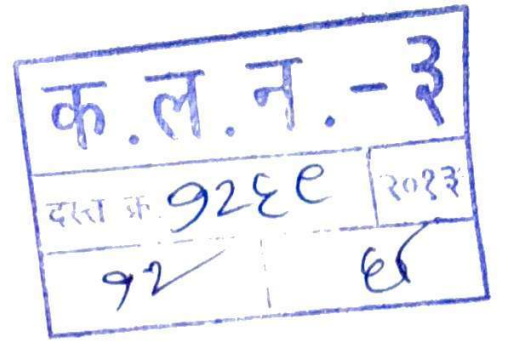 क.ल.न.-३
दस्त क्र. १२६९ २०१३
१२